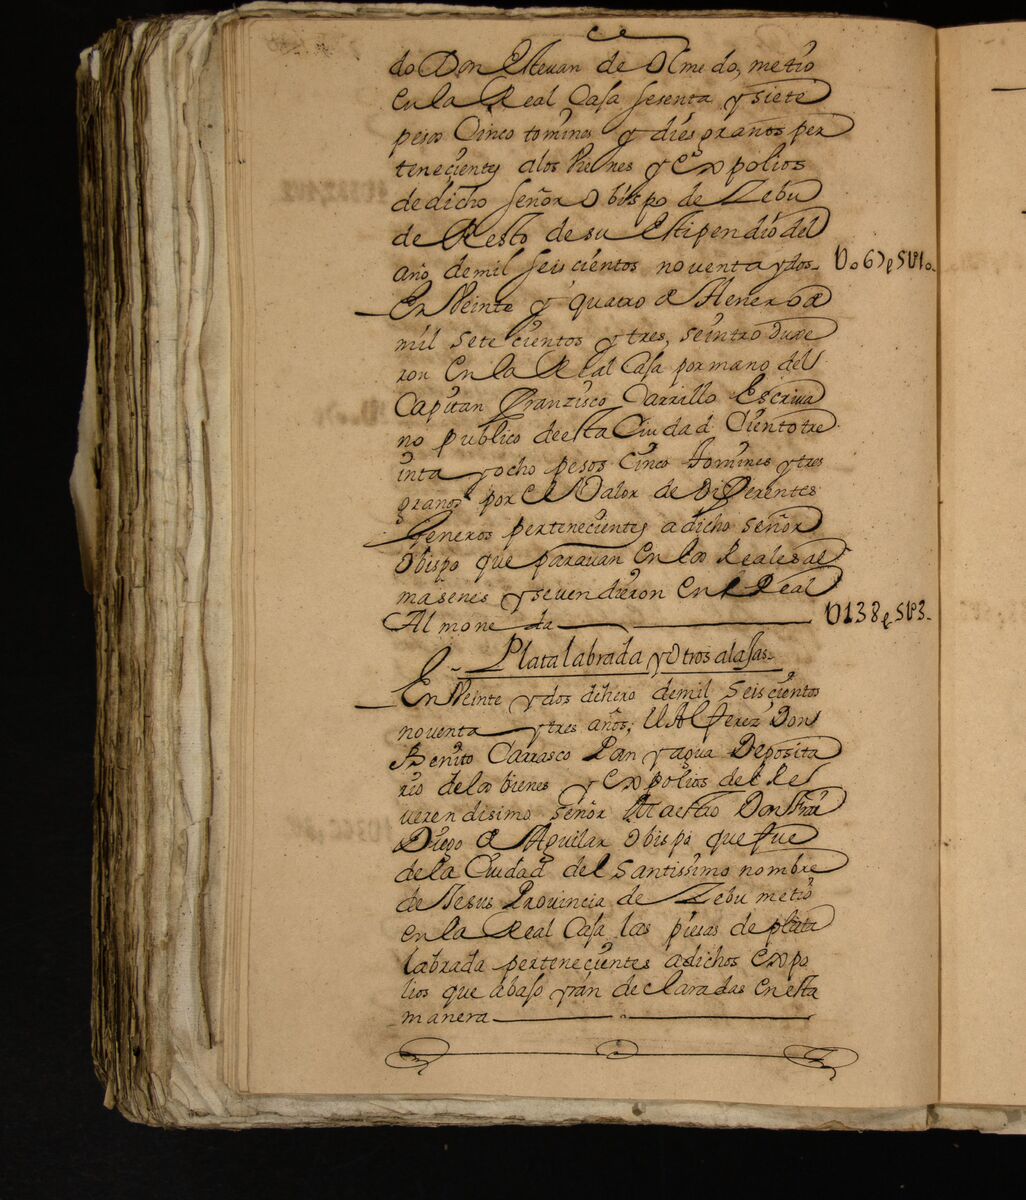 do Don Estevan de Olmedo, metio
en la Real Casa sesenta y siete
pesos Cinco tomines y dies granos per
tenecientes a los Vienes y Expolios
de dicho señor Obispo de Zebu
de Resto de su Estipendio del
año de mil seiscientos noventa y dos
En Veinte y quatro de Henero de
mil setecientos y tres, se introduxe
ron en la Real Casa por mano del
Capitan Franzisco Carrillo Escriva
no publico de esta Ciudad Ciento tre
inta y ocho pesos Cinco tomines y tres
granos por el Valor de Differentes
Generos pertenecientes a dicho señor
Obispo que paravan en los Reales al
masenes y se vendieron en Real
Almoneda
U138 p S5U3
Plata labrada y Otros alajas
En Veinte y dos de hero de mil seiscientos
noventa y tres años; El Alferez Don
Benito Carrasco Pan y agua Deposita
rio de los bienes y expolios del Re
verendisimo señor Maestro Don Fray
Diego de Aguilar Obispo que fue
de la Ciudad del santissimo nombre
de Jesus Provincia de Zebu metio
en la Real Casa las piesas de plata
labrada pertenecientes a dichos expo
lios que abaso yran declaradas en esta
manera